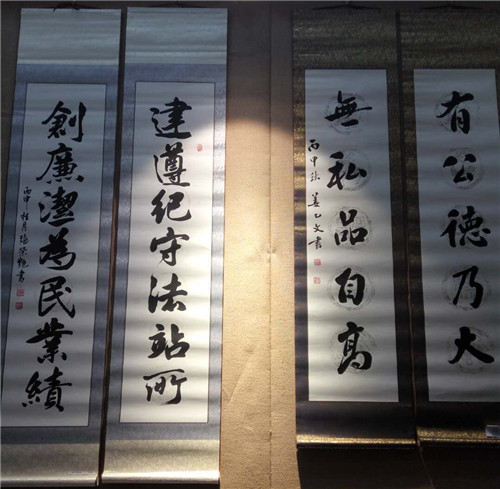 有公德乃大
無私品自高
丙申 文書
建遵紀守法站所
創廉潔為民業績
丙申 月 書